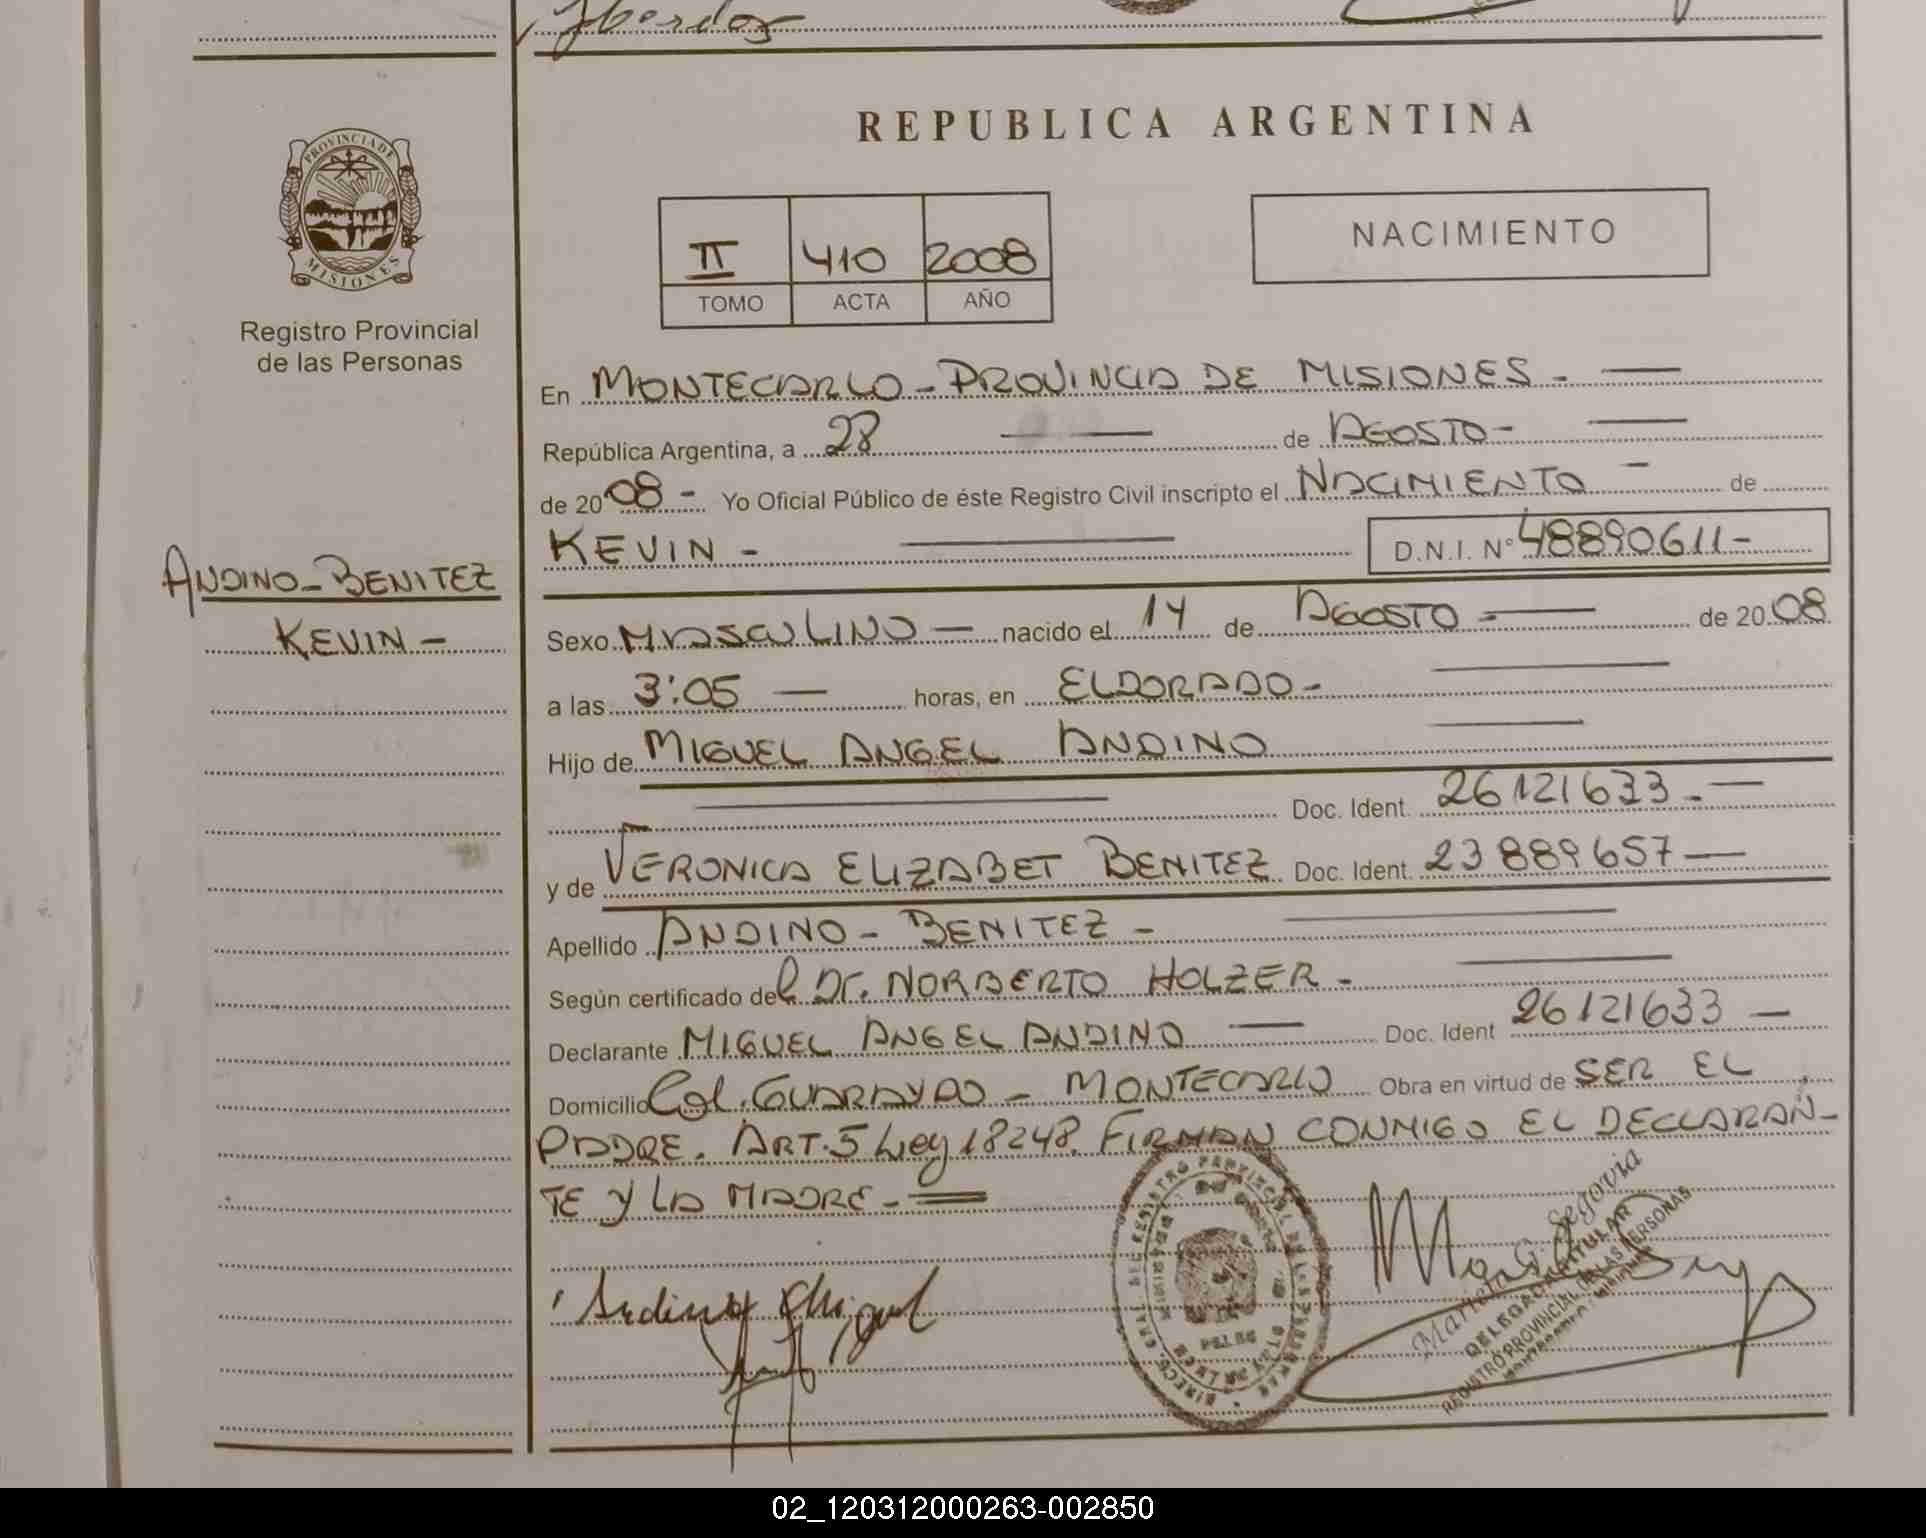 REPUBLICA ARGENTINA
PROVINCIA DE
MISIONES
Registro Provincial
de las Personas
II 410 2008
TOMO ACTA AÑO
NACIMIENTO
En MONTECARLO - PROVINCIA DE MISIONES -
República Argentina, a 28 de AGOSTO -
de 2008 - Yo Oficial Público de éste Registro Civil inscripto el NACIMIENTO - de
KEVIN - D.N.I. N° 48890611 -
ANDINO - BENITEZ
KEVIN -
Sexo MASCULINO - nacido el 14 de AGOSTO - de 2008
a las 3:05 - horas, en ELDORADO -
Hijo de MIGUEL ANGEL ANDINO
Doc. Ident. 26121633 -
y de VERONICA ELIZABET BENITEZ Doc. Ident. 23889657 -
Apellido ANDINO - BENITEZ -
Según certificado del Dr. NORBERTO HOLZER -
Declarante MIGUEL ANGEL ANDINO - Doc. Ident 26121633 -
Domicilio Col. GUARAYPO - MONTECARLO Obra en virtud de SER EL
PADRE. ART. 5 Ley 18248. FIRMAN CONMIGO EL DECLARAN-
TE Y LA MADRE -
Andino Miguel
Mariela G. Segovia
DELEGADA TITULAR
REGISTRO PROVINCIAL DE LAS PERSONAS
02_120312000263-002850